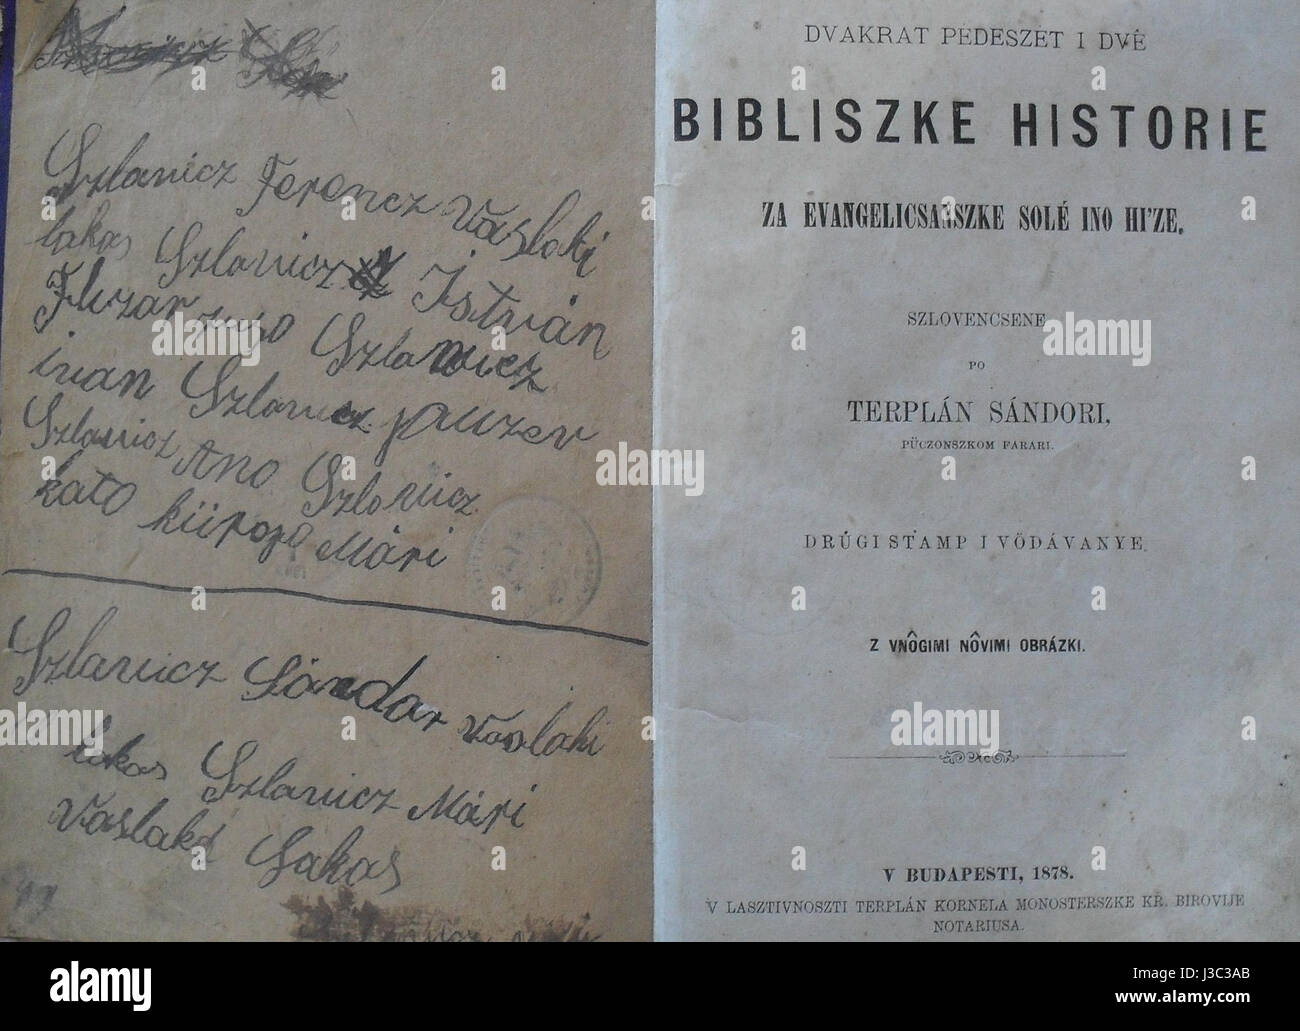 Szlanicz Ferencz Vaslaki
lakas Szlanicz István
Szlanicz
ivan Szlanicz
Szlanicz Ano Szlanicz
kato Mári
Szlanicz Sándar Vaslaki
lakas Szlanicz Mári
Vaslaki Lakas
DVAKRAT PEDESZET I DVÉ
BIBLISZKE HISTORIE
ZA EVANGELICSANSZKE SOLÉ INO HI'ZE.
SZLOVENCSENE
PO
TERPLÁN SÁNDORI,
PÜCZONSZKOM FARARI.
DRÜGI STAMP I VÖDÁVANYE.
Z VNÔGIMI NÔVIMI OBRÁZKI.
V BUDAPESTI, 1878.
V LASZTIVNOSZTI TERPLÁN KORNELA MONOSTERSZKE KR. BIROVIJE
NOTARIUSA.
alamy stock photo
alamy
J3C3AB
www.alamy.com